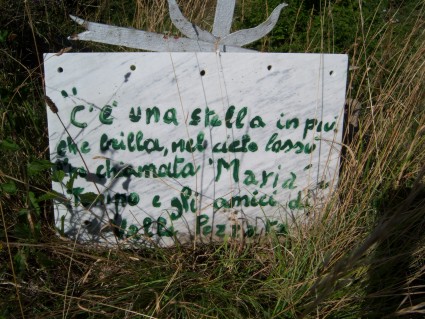 "C'è una stella in più
che brilla, nel cielo lassù
chiamata "Maria"
e gli amici di
della